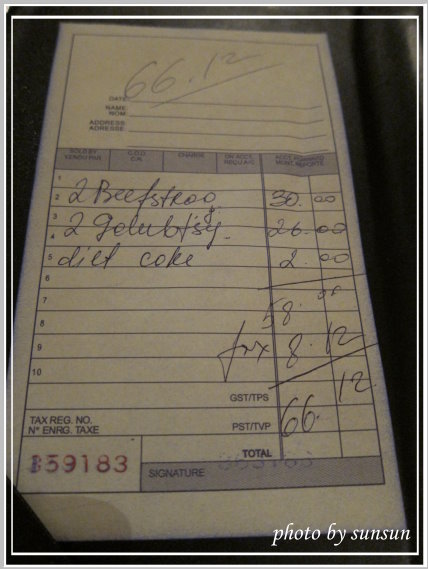 66.12
DATE:
NAME:
NOM:
ADDRESS:
ADRESSE:
SOLD BY C.O.D. CHARGE ON ACCT. ACCT. FORWARD
VENDU PAR C.R. REÇU A/C MONT. REPORTÉ
1
2 2 Beefstrog 30.00
3
4 2 Golubtsy 26.00
5 diet coke 2.00
6
7 58.00
8
9 tax 8.12
10
GST/TPS 12
TAX REG. NO. PST/TVP 66.
N° ENRG. TAXE
TOTAL
859183 SIGNATURE
photo by sunsun